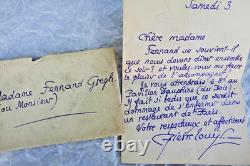 Samedi 3
Chère madame
Fernand se souvient-il
que nous devons dîner ensemble
ce soir? et voulez-vous me faire
le plaisir de l'accompagner
Je vous attendrais à 8h au
Pavillon Dauphine (du Bois).
Il fait si beau que ce serait
dommage de s'enfermer dans
un restaurant de Paris
Votre respectueux et affectionné
Pierre Louÿs
Madame Fernand Gregh
(ou Monsieur)